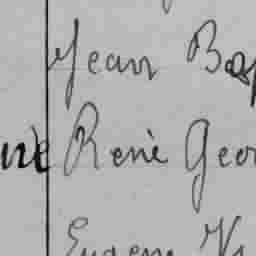 Jean Bap
né René Geor
Eugene Vi